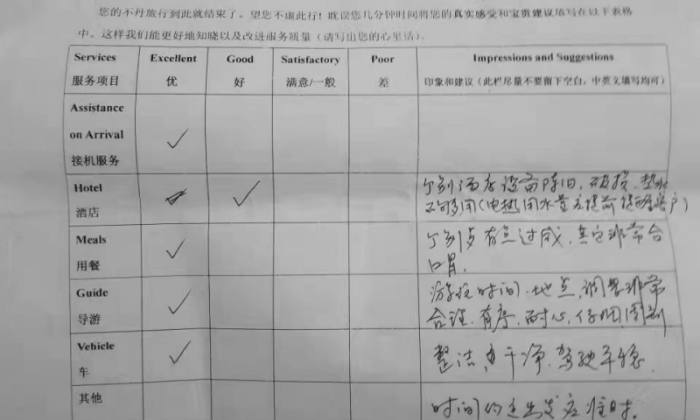 您的不丹旅行到此就结束了。望您不虚此行!耽误您几分钟时间将您的真实感受和宝贵建议填写在以下表格
中。这样我们能更好地知晓以及改进服务质量(请写出您的心里话)。
Services Excellent Good Satisfactory Poor Impressions and Suggestions
服务项目 优 好 满意/一般 差 印象和建议(此栏尽量不要留下空白,中英文填写均可)
Assistance
on Arrival
接机服务
Hotel 个别酒店设备陈旧,破损,热水
酒店 不够用(电热用水量应提前提醒客户)
Meals 个别为有点过咸,其它非常合
用餐 口胃.
Guide 游程时间、地点,调整非常
导游 合理、有序,耐心,仔细周到
Vehicle 整洁、干净、驾驶平稳
车
其他 时间